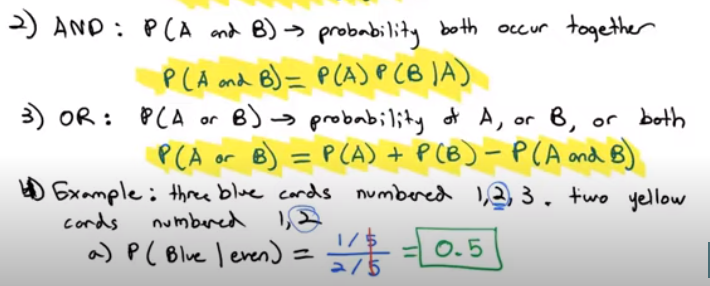 2) AND : P(A and B) → probability both occur together
P(A and B) = P(A) P(B|A)
3) OR : P(A or B) → probability of A, or B, or both
P(A or B) = P(A) + P(B) - P(A and B)
Example : three blue cards numbered 1, 2, 3. two yellow
cards numbered 1, 2
a) P( Blue | even) = 1/5 / 2/5 = 0.5